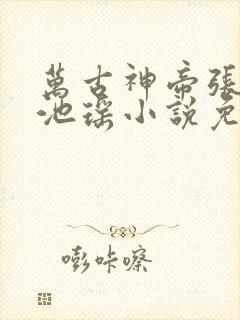 萬古神帝張
池瑤小說免
嘭咔嚓